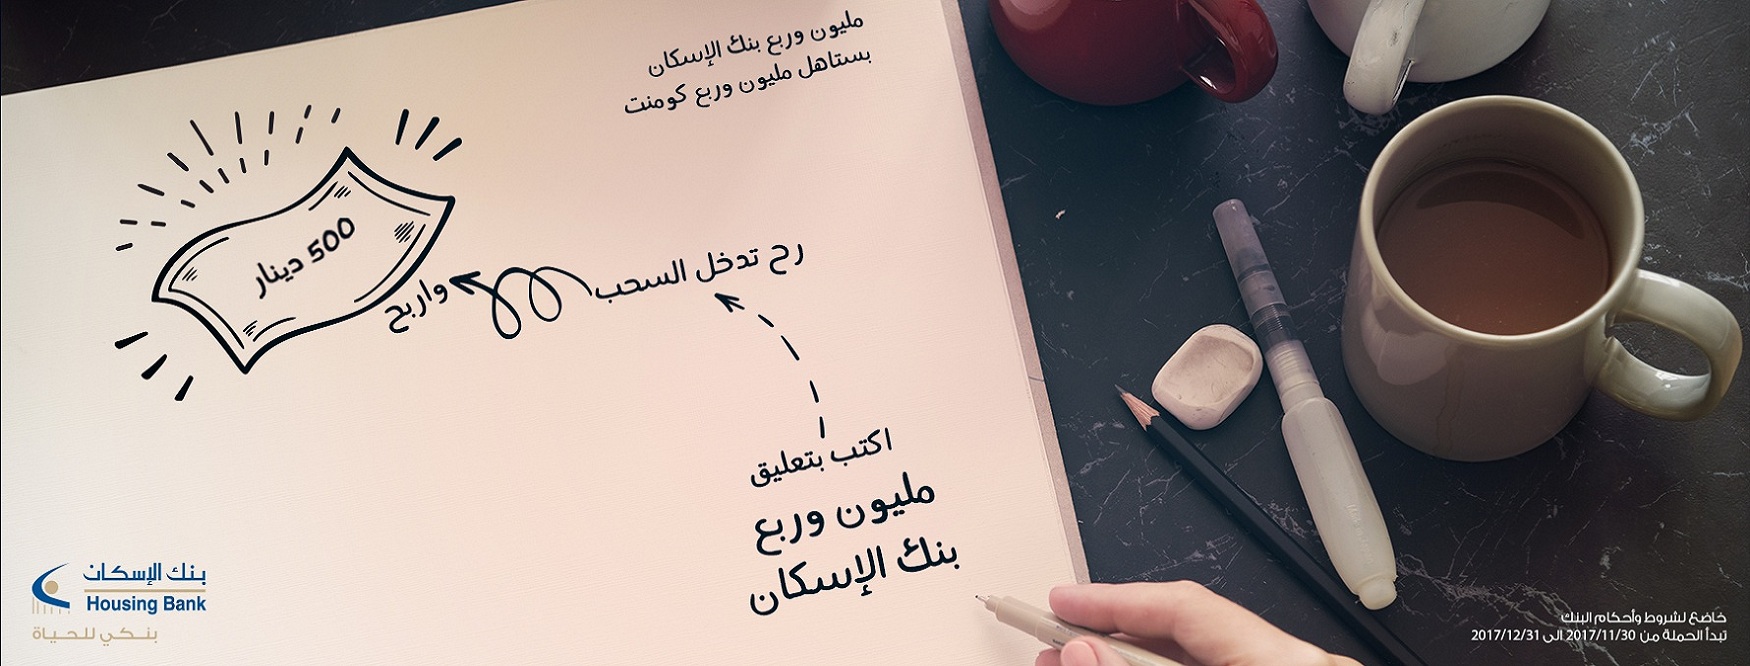 مليون وربع بنك الإسكان
بستاهل مليون وربع كومنت
اكتب بتعليق
مليون وربع
بنك الإسكان
رح تدخل السحب
واربح
500 دينار
بنك الإسكان
Housing Bank
بنكي للحياة
خاضع لشروط وأحكام البنك
تبدأ الحملة من 2017/11/30 الى 2017/12/31